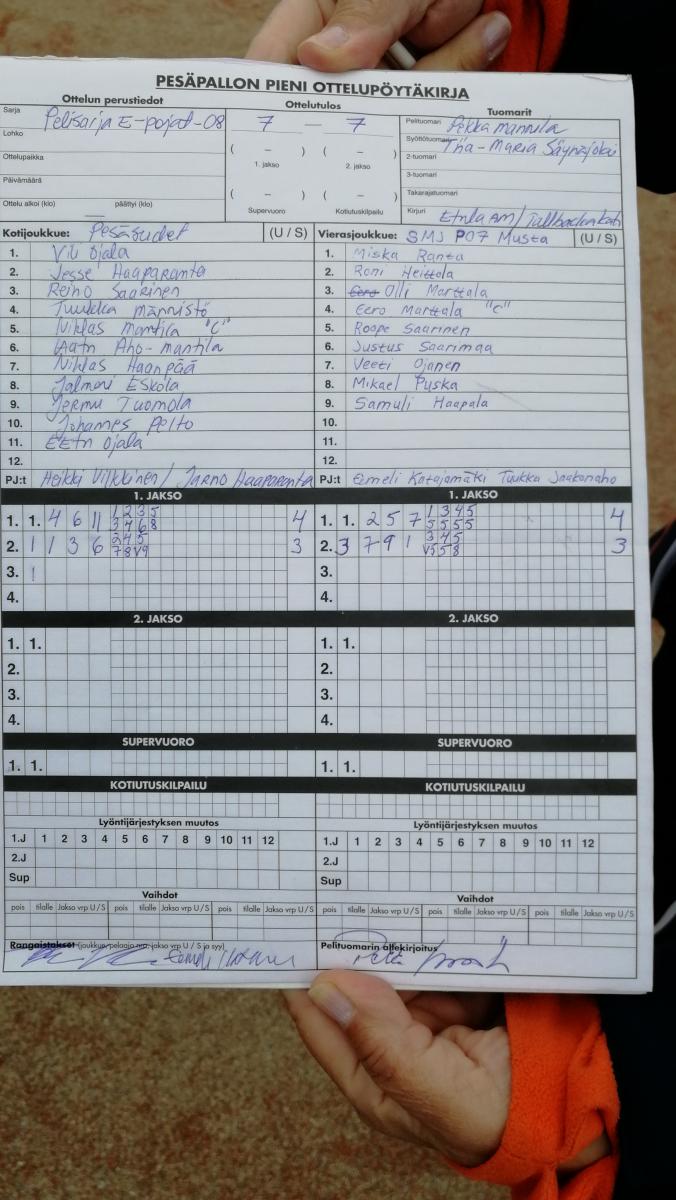 PESÄPALLON PIENI OTTELUPÖYTÄKIRJA
Ottelun perustiedot
Ottelutulos
Tuomarit
Sarja Pelisarja E-pojat-08
7 — 7
Pelituomari Pekka Mannila
Lohko
Syöttötuomari Tiia-Maria Säynäjoki
( – ) ( – )
1. jakso 2. jakso
Ottelupaikka
2-tuomari
3-tuomari
Päivämäärä
( – ) ( – )
Takarajatuomari
Ottelu alkoi (klo) päättyi (klo)
Supervuoro Kotiutuskilpailu
Kirjuri Etnla AM/
Kotijoukkue: Pesäsudet (U / S)
1. Vili Ojala
2. Jesse Haaparanta
3. Reino Saarinen
4. Tuukka Männistö
5. Niklas Mantila "C"
6. Aho-mantila
7. Niklas Haanpää
8. Jalmari Eskola
9. Jermu Tuomola
10. Johannes Pelto
11. EEtu Ojala
12.
PJ:t Heikki Vilkkinen / Jarno Haaparanta
Vierasjoukkue: SMJ P07 Musta (U / S)
1. Miska Ranta
2. Roni Heittola
3. Eero Olli Marttala
4. Eero Marttala "C"
5. Roope Saarinen
6. Justus Saarimaa
7. Veeti Ojanen
8. Mikael Puska
9. Samuli Haapala
10.
11.
12.
PJ:t Eemeli Katajamäki Tuukka Jaakonaho
1. JAKSO
1. 1. 4 6 11 1 2 3 5 4
3 4 6 8
2. 1 1 3 6 2 4 5 3
7 8 V9
3. 1
4.
1. JAKSO
1. 1. 2 5 7 1 3 4 5 4
5 5 5 5
2. 3 7 9 1 3 4 5 3
V5 5 8
3.
4.
2. JAKSO
1. 1.
2.
3.
4.
2. JAKSO
1. 1.
2.
3.
4.
SUPERVUORO
1. 1.
SUPERVUORO
1. 1.
KOTIUTUSKILPAILU
KOTIUTUSKILPAILU
Lyöntijärjestyksen muutos
1.J 1 2 3 4 5 6 7 8 9 10 11 12
2.J
Sup
Lyöntijärjestyksen muutos
1.J 1 2 3 4 5 6 7 8 9 10 11 12
2.J
Sup
Vaihdot
pois tilalle Jakso vrp U / S pois tilalle Jakso vrp U / S pois tilalle Jakso vrp U / S
Vaihdot
pois tilalle Jakso vrp U / S pois tilalle Jakso vrp U / S pois tilalle Jakso vrp U / S
Rangaistukset (joukkue, pelaaja nro, jakso vrp U / S ja syy)
Pelituomarin allekirjoitus